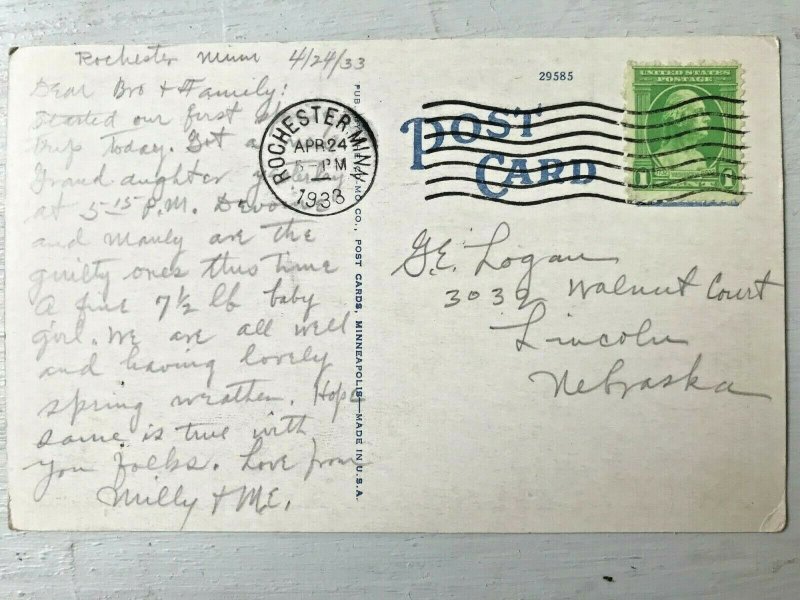 Rochester Minn 4/24/33
Dear Bro & Family:
Started our first
trip Today. Got a
Grand daughter
at 5 15 P.M.
and Manly are the
guilty ones this time
A fine 7 1/2 lb baby
girl. We are all well
and having lovely
spring weather. Hope
same is true with
you folks. Love from
Milly & M.E.
ROCHESTER, MINN.
APR 24
PM
1933
CO., POST CARDS, MINNEAPOLIS—MADE IN U.S.A.
29585
POST
CARD
UNITED STATES
POSTAGE
1 1
G.E. Logan
3032 Walnut Court
Lincoln
Nebraska